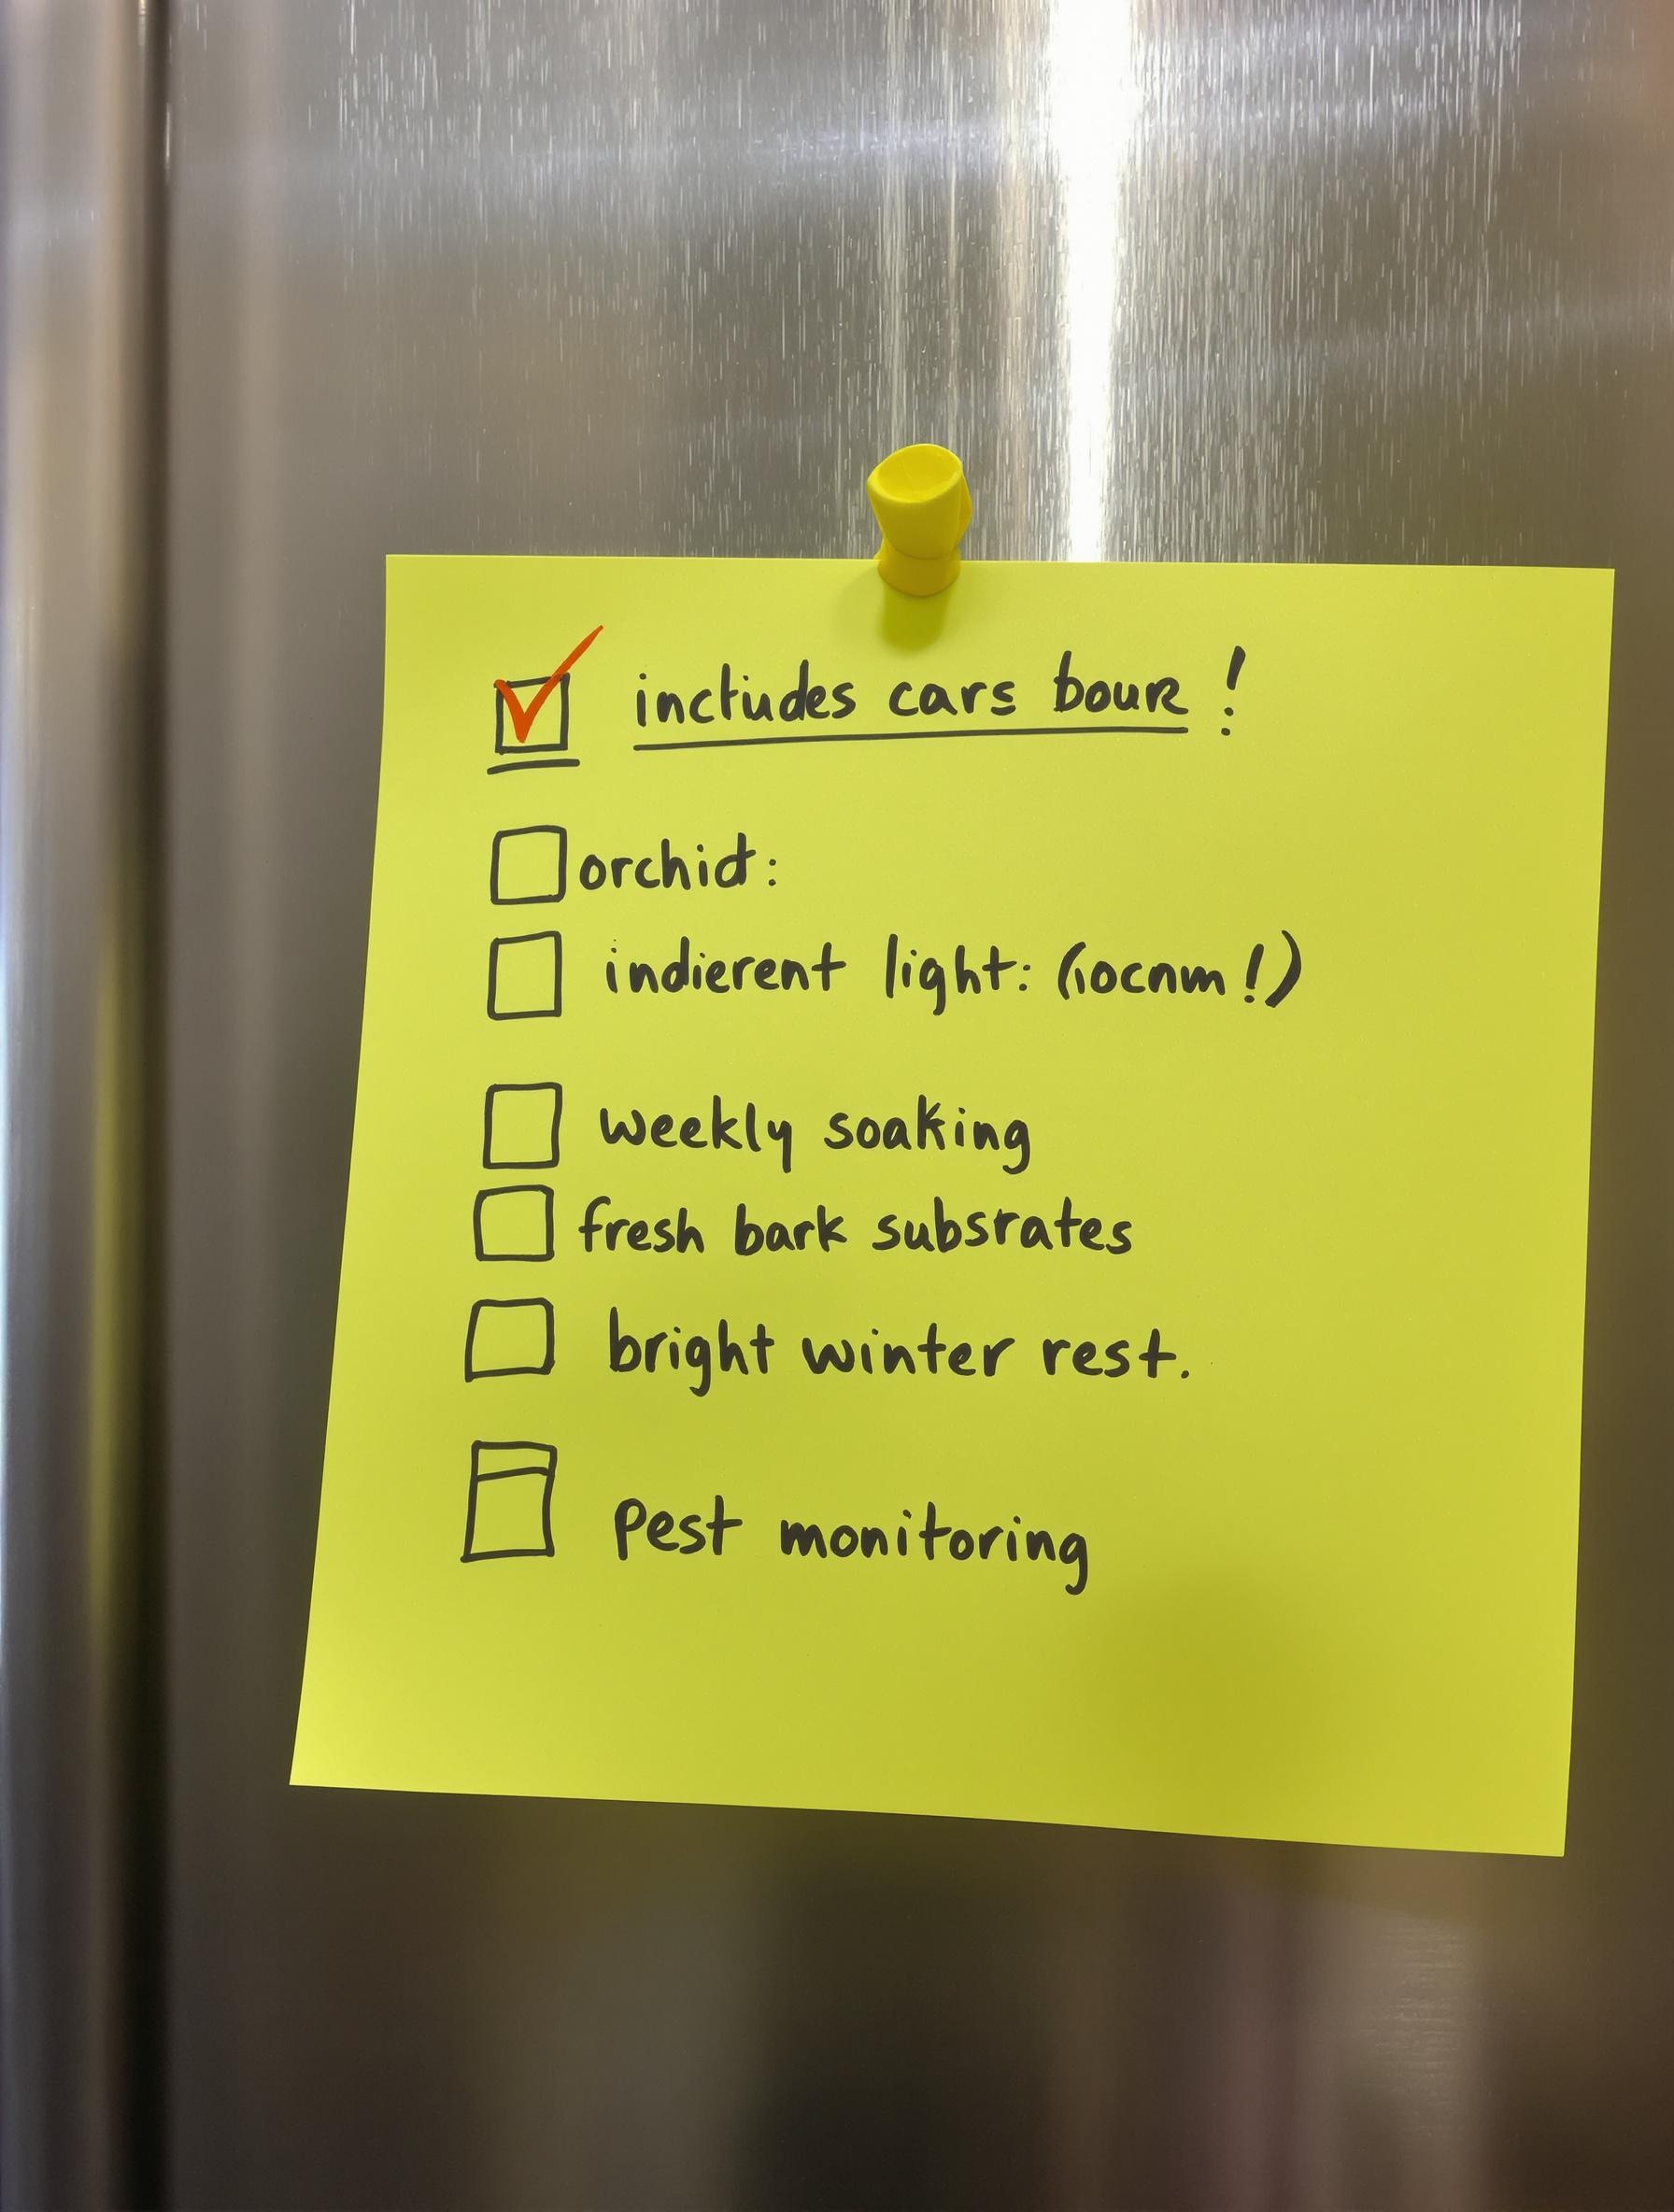 includes cars bour!
orchid:
indierent light: (iocnm!)
weekly soaking
fresh bark subsrates
bright winter rest.
Pest monitoring